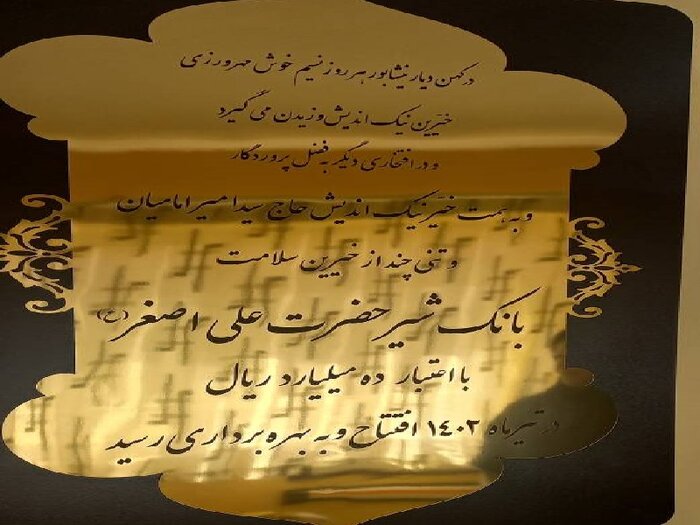 در کهن دیار نیشابور هر روز نسیم خوش مهرورزی
خیرین نیک اندیش وزیدن می گیرد
و در افتخاری دیگر به فضل پروردگار
و به همت خیر نیک اندیش حاج سید امیر امامیان
و تنی چند از خیرین سلامت
بانک شیر حضرت علی اصغر (ع)
با اعتبار ده میلیارد ریال
در تیر ماه ۱۴۰۲ افتتاح و به بهره برداری رسید